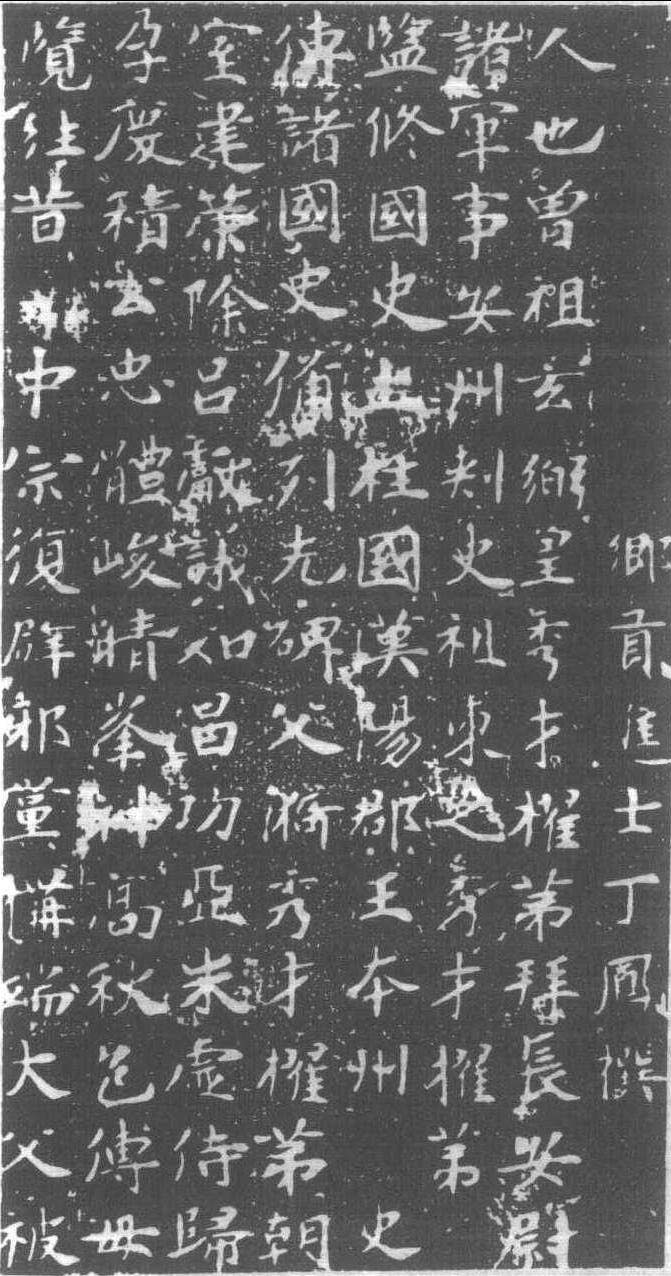 鄉貢進士丁鳳撰
人也曾祖玄弼皇秀才擢第拜長安尉
諸軍事安州刺史祖柬之秀才擢第
監修國史上柱國漢陽郡王本州 史
傳諸國史備列先碑父漪秀才擢第朝
室建策除呂獻議知昌功亞朱虛侍歸
孕慶積玄忠體峻精峯神高秋包傅毋
覽往昔 中宗復辟邪黨構端大父被